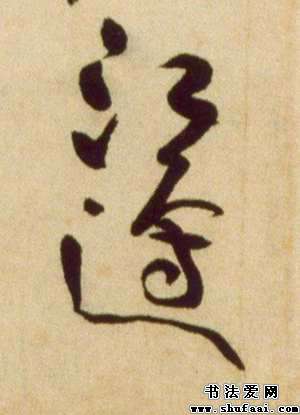 江邊
书法爱网
www.shufaai.com